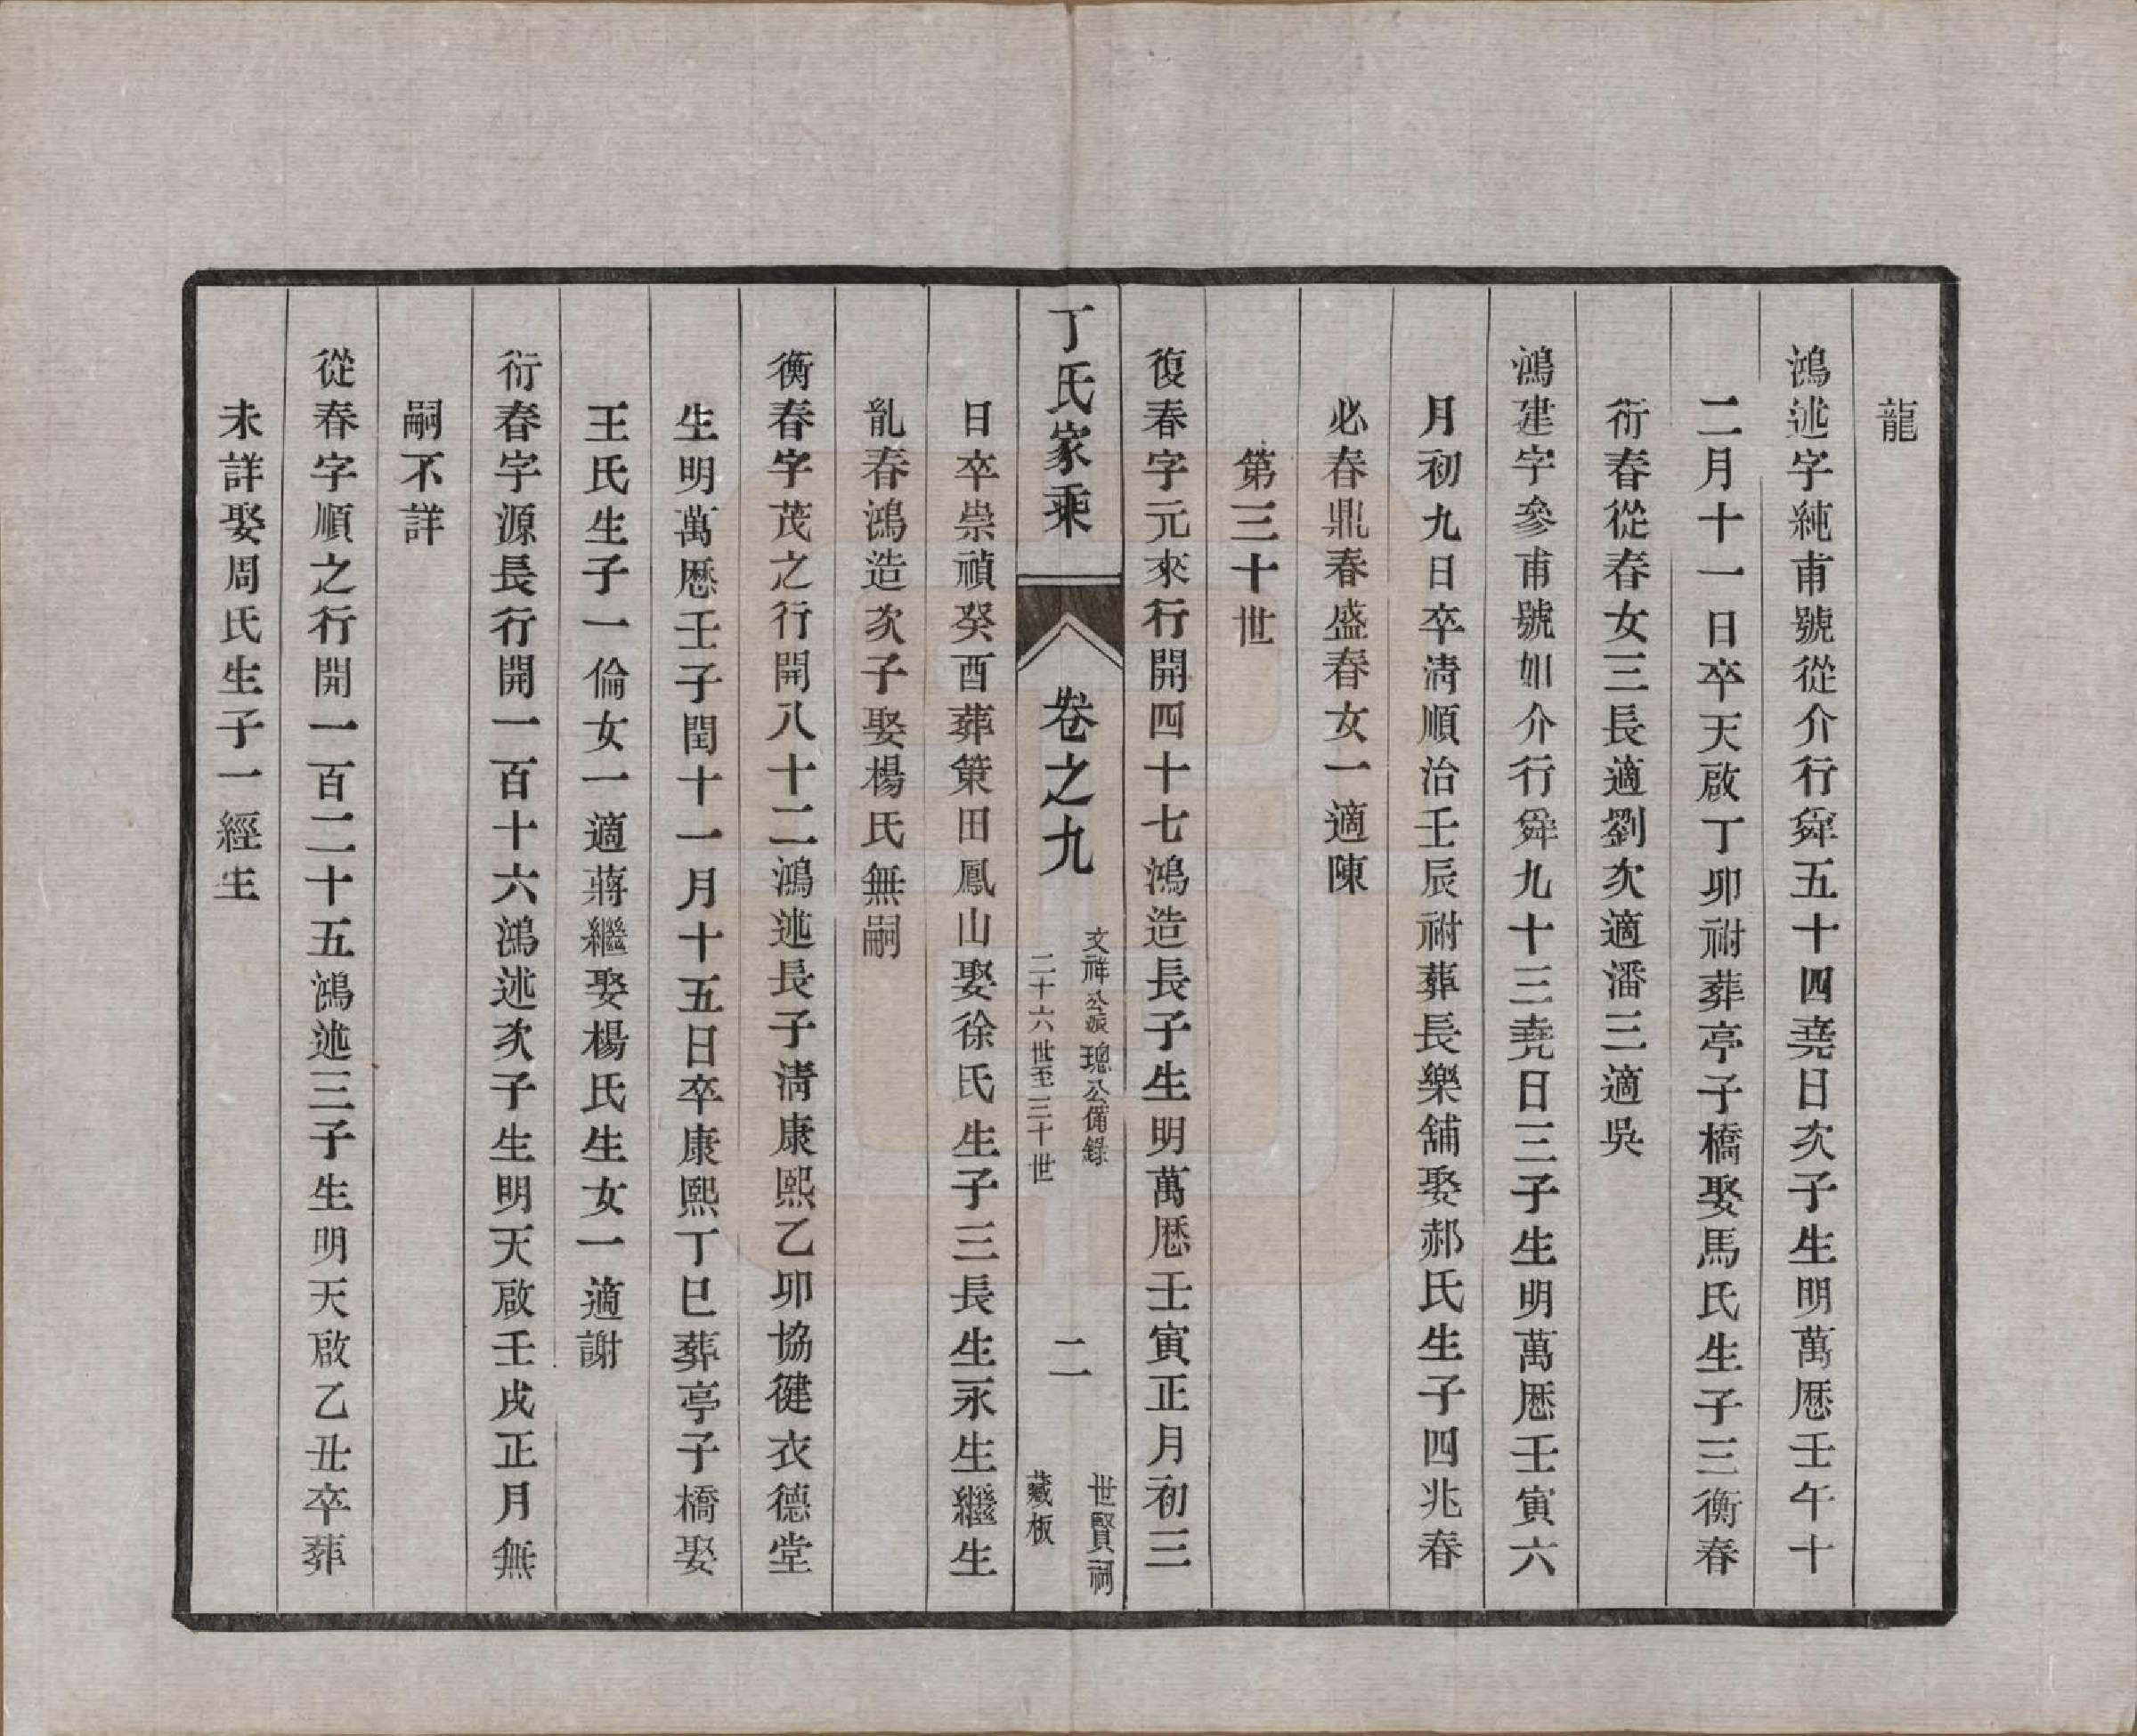 龍
鴻述字純甫號從介行舜五十四堯日次子生明萬厯壬午十
二月十一日卒天啟丁卯祔葬亭子橋娶馬氏生子三衡春
衍春從春女三長適劉次適潘三適吳
鴻建字參甫號如介行舜九十三堯日三子生明萬厯壬寅六
月初九日卒淸順治壬辰祔葬長樂舖娶郝氏生子四兆春
必春鼎春盛春女一適陳
第三十世
復春字元來行開四十七鴻造長子生明萬厯壬寅正月初三
丁氏家乘
卷之九
文祥公派璁公備錄
二十六世至三十世
二
世賢祠
藏板
日卒崇禎癸酉葬策田鳳山娶徐氏生子三長生永生繼生
亂春鴻造次子娶楊氏無嗣
衡春字茂之行開八十二鴻述長子淸康熙乙卯協健衣德堂
生明萬厯壬子閏十一月十五日卒康熙丁巳葬亭子橋娶
王氏生子一倫女一適蔣繼娶楊氏生女一適謝
衍春字源長行開一百十六鴻述次子生明天啟壬戌正月無
嗣不詳
從春字順之行開一百二十五鴻述三子生明天啟乙丑卒葬
未詳娶周氏生子一經生